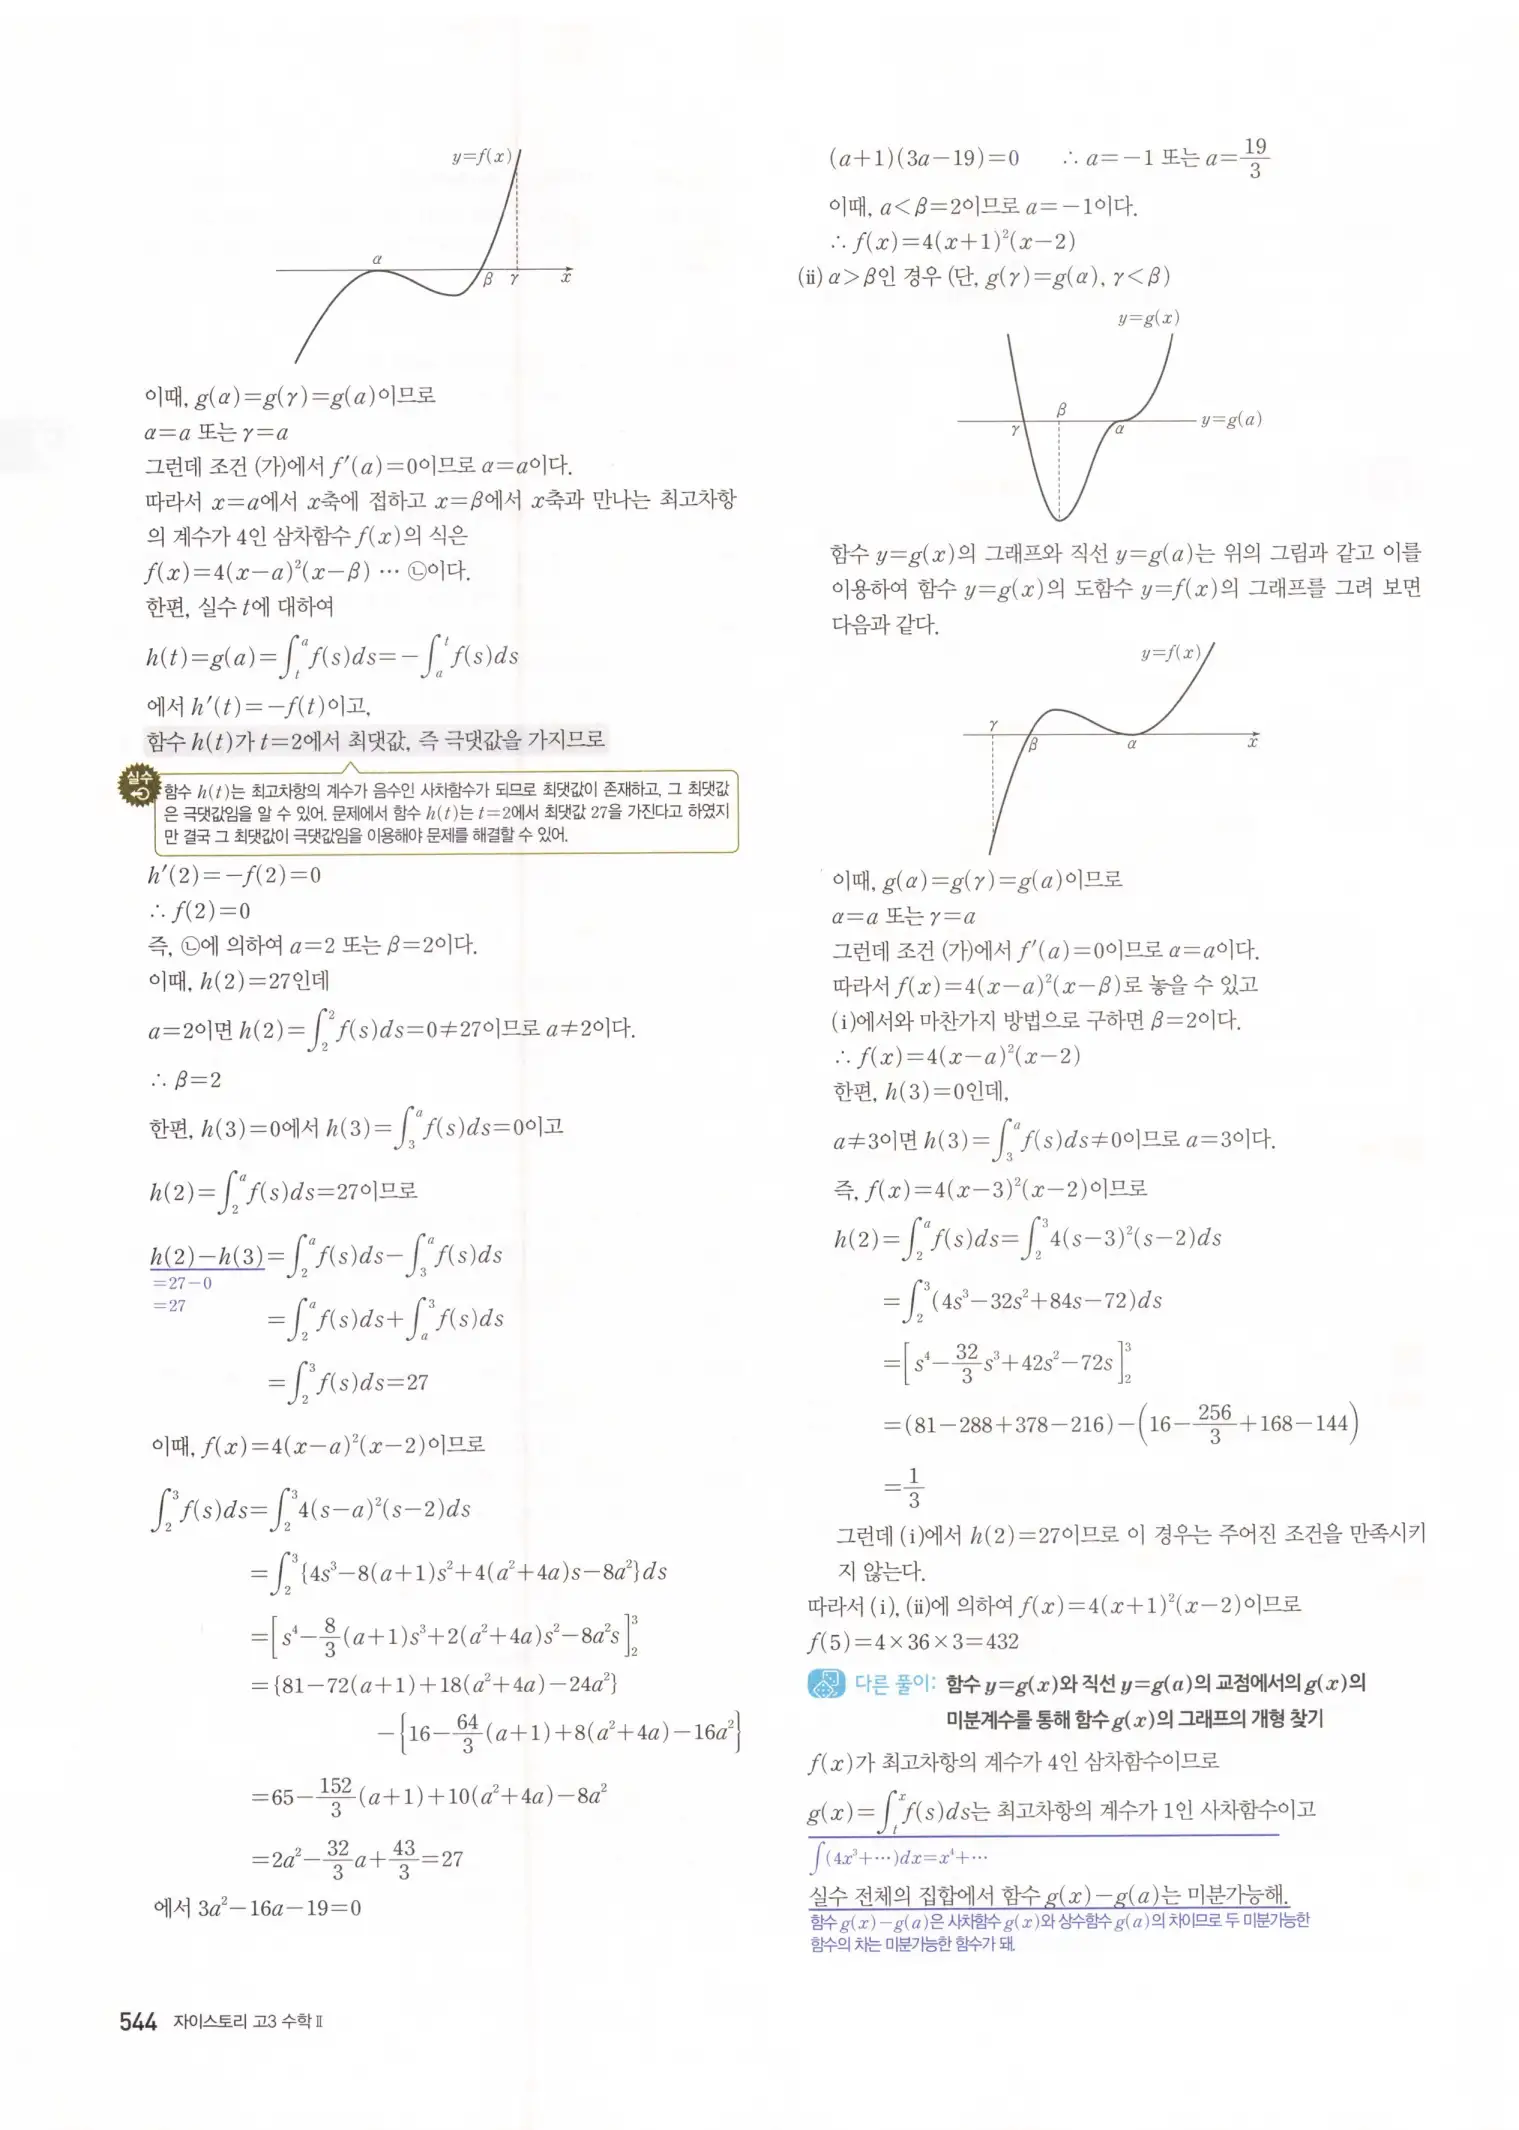 y=f(x)
α
β γ x
이때, g(α)=g(γ)=g(a)이므로
α=a 또는 γ=a
그런데 조건 (가)에서 f′(a)=0이므로 α=a이다.
따라서 x=a에서 x축에 접하고 x=β에서 x축과 만나는 최고차항
의 계수가 4인 삼차함수 f(x)의 식은
f(x)=4(x-a)²(x-β) ⋯ ㉡이다.
한편, 실수 t에 대하여
h(t)=g(a)=∫_t^a f(s)ds=-∫_a^t f(s)ds
에서 h′(t)=-f(t)이고,
함수 h(t)가 t=2에서 최댓값, 즉 극댓값을 가지므로
실수
함수 h(t)는 최고차항의 계수가 음수인 사차함수가 되므로 최댓값이 존재하고, 그 최댓값
은 극댓값임을 알 수 있어. 문제에서 함수 h(t)는 t=2에서 최댓값 27을 가진다고 하였지
만 결국 그 최댓값이 극댓값임을 이용해야 문제를 해결할 수 있어.
h′(2)=-f(2)=0
∴ f(2)=0
즉, ㉡에 의하여 a=2 또는 β=2이다.
이때, h(2)=27인데
a=2이면 h(2)=∫_2^2 f(s)ds=0≠27이므로 a≠2이다.
∴ β=2
한편, h(3)=0에서 h(3)=∫_3^a f(s)ds=0이고
h(2)=∫_2^a f(s)ds=27이므로
h(2)-h(3)=∫_2^a f(s)ds-∫_3^a f(s)ds
=27-0
=27
=∫_2^a f(s)ds+∫_a^3 f(s)ds
=∫_2^3 f(s)ds=27
이때, f(x)=4(x-a)²(x-2)이므로
∫_2^3 f(s)ds=∫_2^3 4(s-a)²(s-2)ds
=∫_2^3 {4s³-8(a+1)s²+4(a²+4a)s-8a²}ds
=[s⁴-8/3(a+1)s³+2(a²+4a)s²-8a²s]_2^3
={81-72(a+1)+18(a²+4a)-24a²}
-{16-64/3(a+1)+8(a²+4a)-16a²}
=65-152/3(a+1)+10(a²+4a)-8a²
=2a²-32/3a+43/3=27
에서 3a²-16a-19=0
544 자이스토리 고3 수학 Ⅱ
(a+1)(3a-19)=0 ∴ a=-1 또는 a=19/3
이때, a<β=2이므로 a=-1이다.
∴ f(x)=4(x+1)²(x-2)
(ⅱ) α>β인 경우 (단, g(γ)=g(α), γ<β)
y=g(x)
β
γ α y=g(a)
함수 y=g(x)의 그래프와 직선 y=g(a)는 위의 그림과 같고 이를
이용하여 함수 y=g(x)의 도함수 y=f(x)의 그래프를 그려 보면
다음과 같다.
y=f(x)
γ
β α x
이때, g(α)=g(γ)=g(a)이므로
α=a 또는 γ=a
그런데 조건 (가)에서 f′(a)=0이므로 α=a이다.
따라서 f(x)=4(x-a)²(x-β)로 놓을 수 있고
(ⅰ)에서와 마찬가지 방법으로 구하면 β=2이다.
∴ f(x)=4(x-a)²(x-2)
한편, h(3)=0인데,
a≠3이면 h(3)=∫_3^a f(s)ds≠0이므로 a=3이다.
즉, f(x)=4(x-3)²(x-2)이므로
h(2)=∫_2^a f(s)ds=∫_2^3 4(s-3)²(s-2)ds
=∫_2^3 (4s³-32s²+84s-72)ds
=[s⁴-32/3s³+42s²-72s]_2^3
=(81-288+378-216)-(16-256/3+168-144)
=1/3
그런데 (ⅰ)에서 h(2)=27이므로 이 경우는 주어진 조건을 만족시키
지 않는다.
따라서 (ⅰ), (ⅱ)에 의하여 f(x)=4(x+1)²(x-2)이므로
f(5)=4×36×3=432
다른 풀이: 함수 y=g(x)와 직선 y=g(a)의 교점에서의 g(x)의
미분계수를 통해 함수 g(x)의 그래프의 개형 찾기
f(x)가 최고차항의 계수가 4인 삼차함수이므로
g(x)=∫_t^x f(s)ds는 최고차항의 계수가 1인 사차함수이고
∫(4x³+⋯)dx=x⁴+⋯
실수 전체의 집합에서 함수 g(x)-g(a)는 미분가능해.
함수 g(x)-g(a)은 사차함수 g(x)와 상수함수 g(a)의 차이므로 두 미분가능한
함수의 차는 미분가능한 함수가 돼.